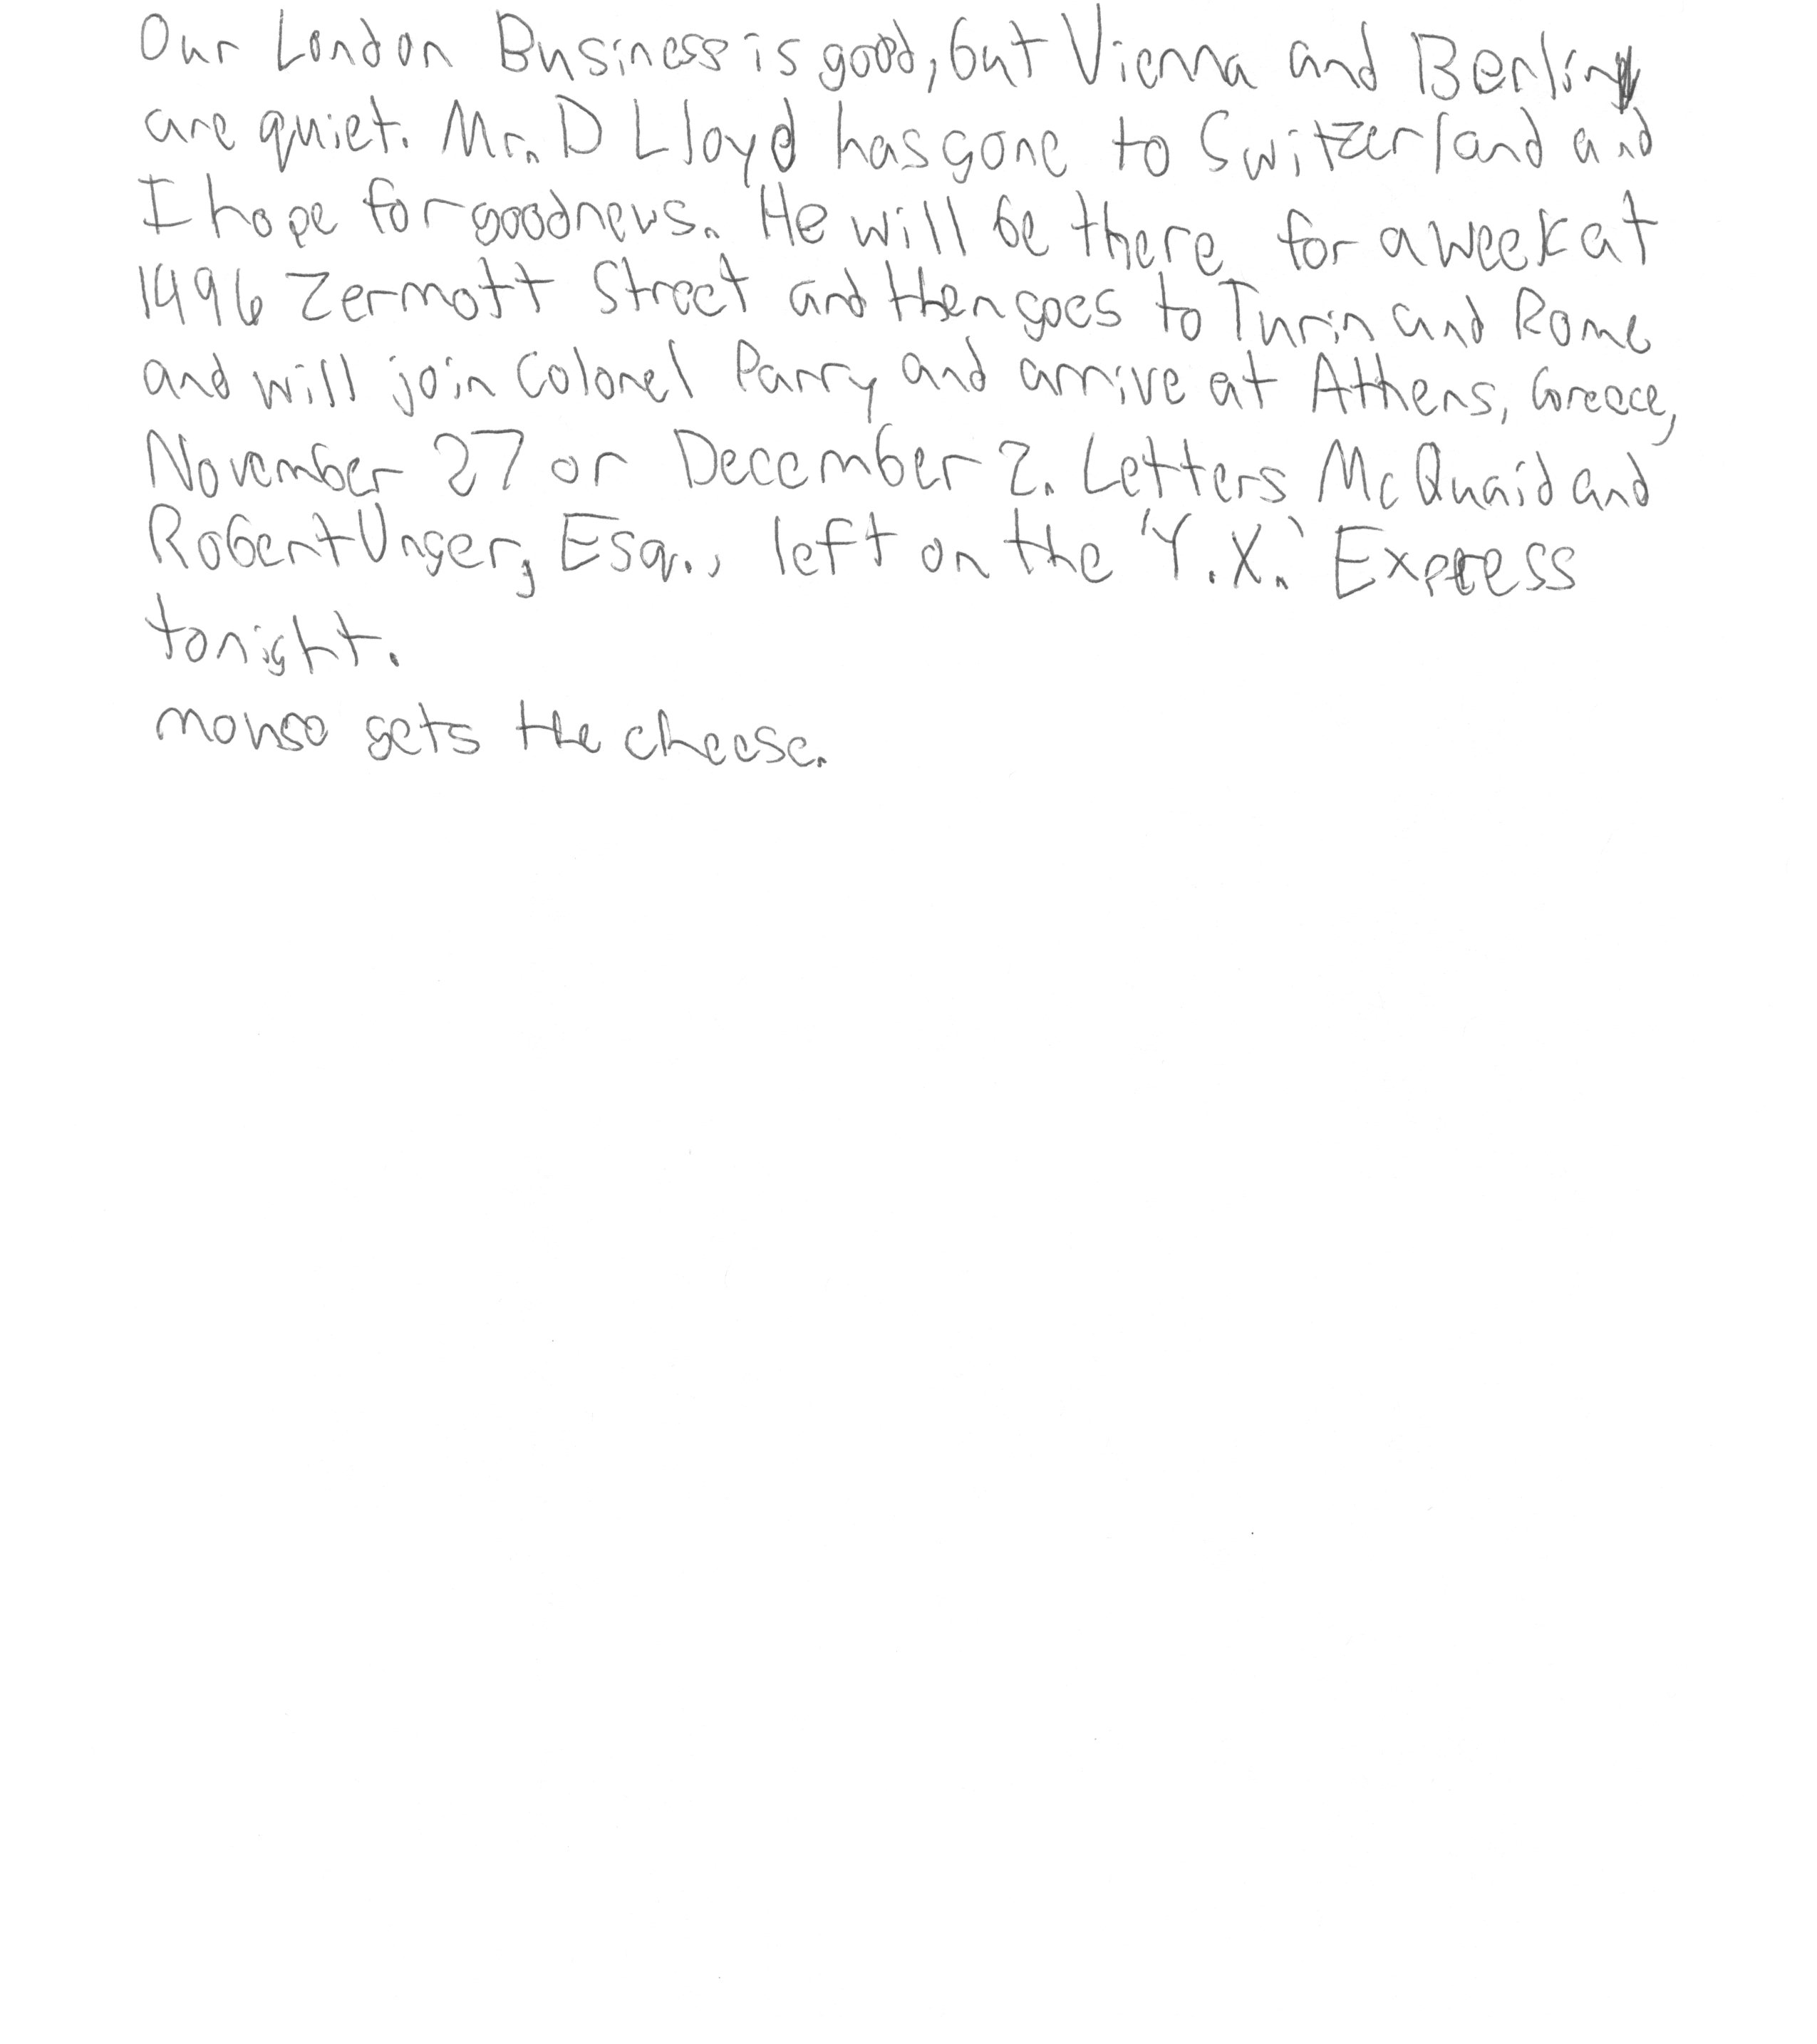 Our London Business is good, but Vienna and Berlin
are quiet. Mr. D Lloyd has gone to Switzerland and
I hope for good news. He will be there for a week at
1496 Zermott Street and then goes to Turin and Rome
and will join Colonel Parry and arrive at Athens, Greece,
November 27 or December 2. Letters McQuaid and
Robert Unger, Esq., left on the 'Y.X.' Express
tonight.
mouse gets the cheese.